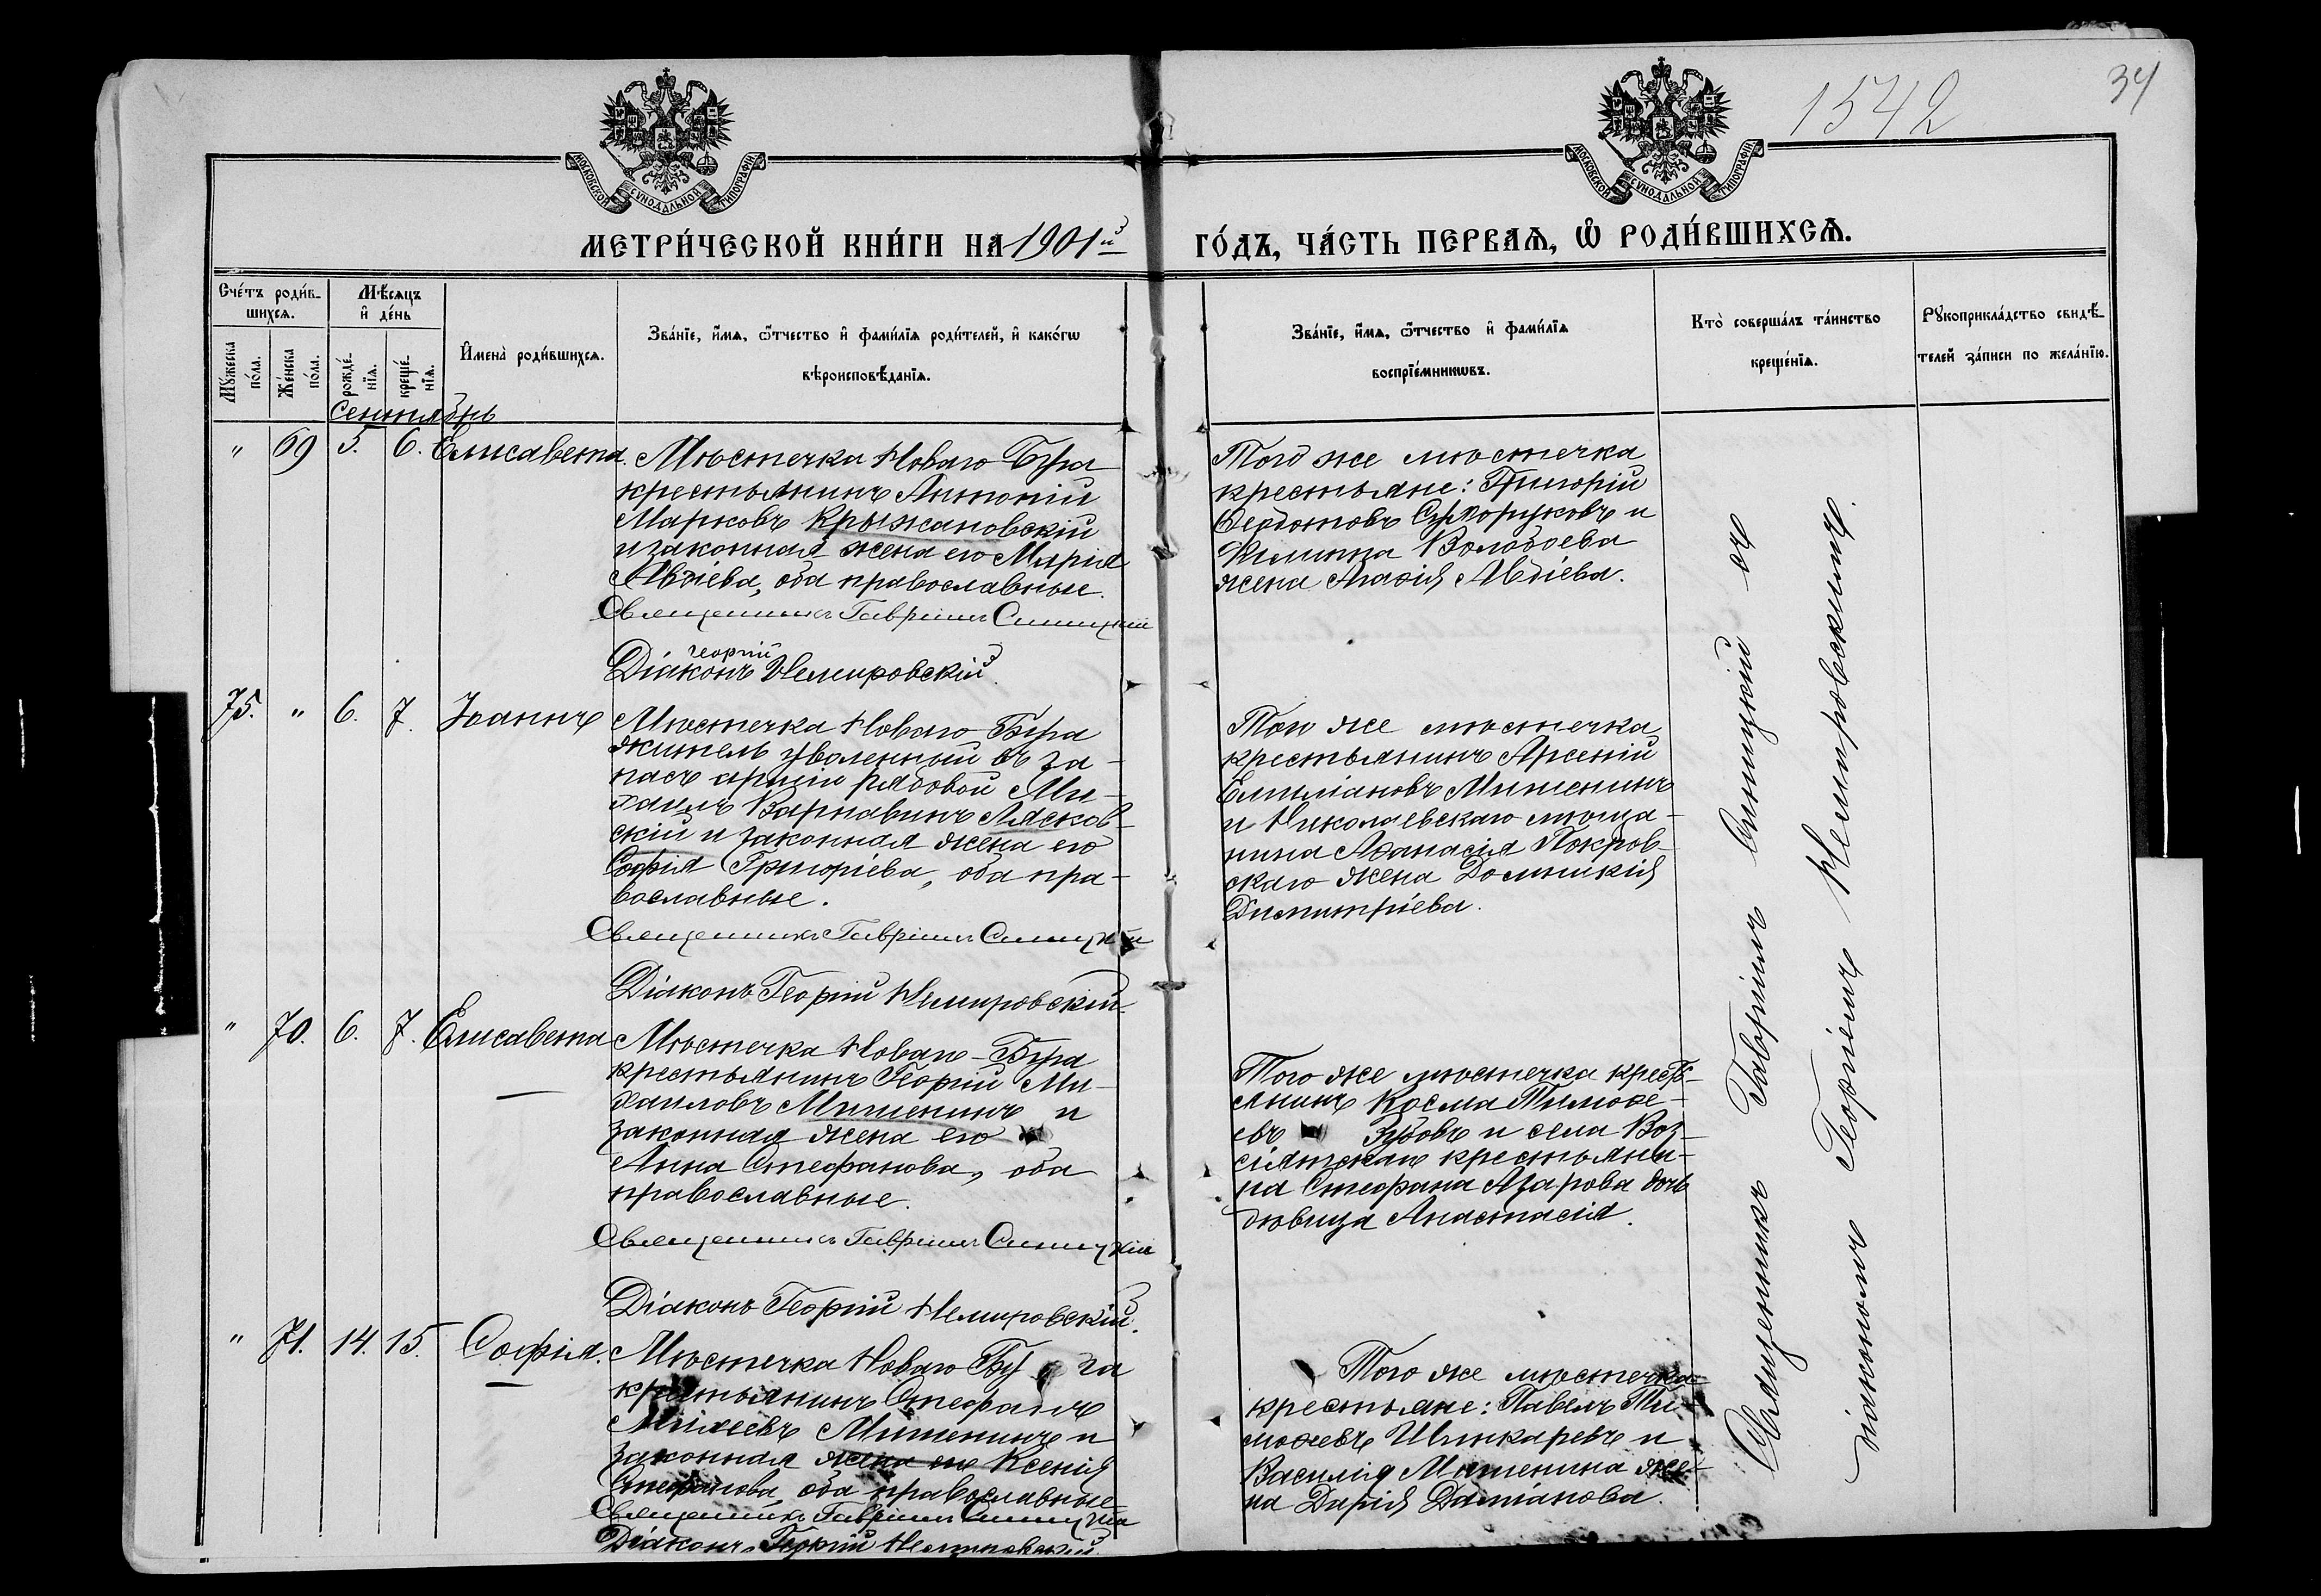 1542
34
МОСКОВСКОЙ СѴНОДАЛЬНОЙ ТИПОГРАФІИ
МОСКОВСКОЙ СѴНОДАЛЬНОЙ ТИПОГРАФІИ
МЕТРИ́ЧЕСКОЙ КНИ́ГИ НА 1901й ГО́ДЪ, ЧА́СТЬ ПЕРВАѦ, Ѿ РОДИ́ВШИХСѦ.
Сче́тъ роди́в-
шихсѧ.
Мꙋ́жеска
по́ла.
Же́нска
по́ла.
Мѣ́сѧцъ
и҆ де́нь
рожде́-
нїѧ.
креще́-
нїѧ.
И҆мена̀ роди́вшихсѧ.
Зва́нїе, и҆́мѧ, ѻ҆́тчество и҆ фами́лїѧ роди́телей, и҆ како́гѡ
вѣроисповѣ́данїѧ.
Зва́нїе, и҆́мѧ, ѻ҆́тчество и҆ фами́лїѧ
воспрїе́мникѡвъ.
Кто̀ соверша́лъ та́инство
креще́нїѧ.
Рꙋкоприкла́дство свидѣ́-
телей за́писи по жела́нїю.
Сентябрь
" 69 5. 6. Елисавета.
Мѣстечка Новаго Буга
крестьянинъ Антоній
Марковъ Крыжановскій
и законная жена его Марія
Авдіева, оба православные.
Священникъ Гавріилъ Синицкій
Георгій
Діаконъ Немировскій.
Того же мѣстечка
крестьяне: Григорій
Ѳеодотовъ Сухоруковъ и
Жена Агаѳія Авдіева.
75. " 6. 7. Іоаннъ
Мѣстечка Новаго Буга
житель уволенный въ за-
пасъ арміи рядовой Ми-
хаилъ Варнавинъ Лясков-
скій и законная жена его
Софія Григоріева, оба пра-
вославные.
Священникъ Гавріилъ Синицкій
Діаконъ Георгій Немировскій
Того же мѣстечка
крестьянинъ Арсеній
Емиліановъ Мишенинъ
и Николаевскаго мѣща-
нина Аѳанасія Покров-
скаго жена Домникія
Димитріева.
" 70. 6. 7. Елисавета
Мѣстечка Новаго Буга
крестьянинъ Георгій Ми-
хаиловъ Мишенинъ и
законная жена его
Анна Стефанова, оба
православные.
Священникъ Гавріилъ Синицкій
Діаконъ Георгій Немировскій.
Того же мѣстечка кресть-
янинъ Косма Тимоѳе-
евъ Зубовъ и села Воз-
сіятскаго крестьяни-
на Стефана Азарова дочь
дѣвица Анастасія.
" 71. 14. 15. Софія.
Мѣстечка Новаго Буга
крестьянинъ Стефанъ
Мишенинъ и
законная жена его Ксенія
Стефанова, оба православные
Священникъ Гавріилъ Синицкій
Діаконъ Георгій Немировскій.
Того же мѣстечка
крестьяне: Павелъ Ти-
моѳеевъ Шинкаревъ и
Василія Мишенина же-
на Дарія Даміанова.
Священникъ Гавріилъ Синицкій съ
діакономъ Георгіемъ Немировскимъ.